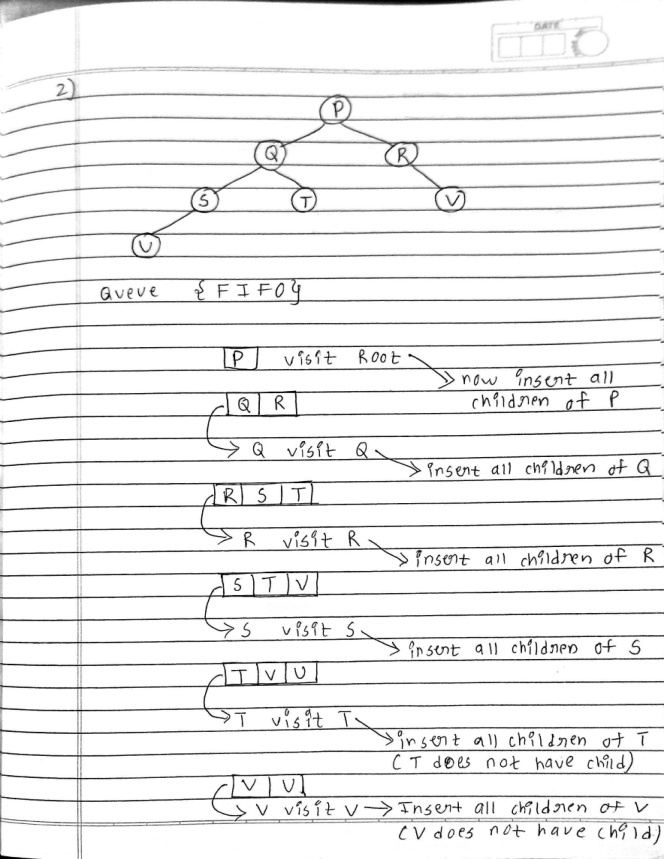 DATE
2)
P
Q R
S T V
U
Queue {FIFO}
P visit Root
now insert all
children of P
Q R
Q visit Q
insert all children of Q
R S T
R visit R
insert all children of R
S T V
S visit S
insert all children of S
T V U
T visit T
insert all children of T
(T does not have child)
V U
V visit V Insert all children of V
(V does not have child)